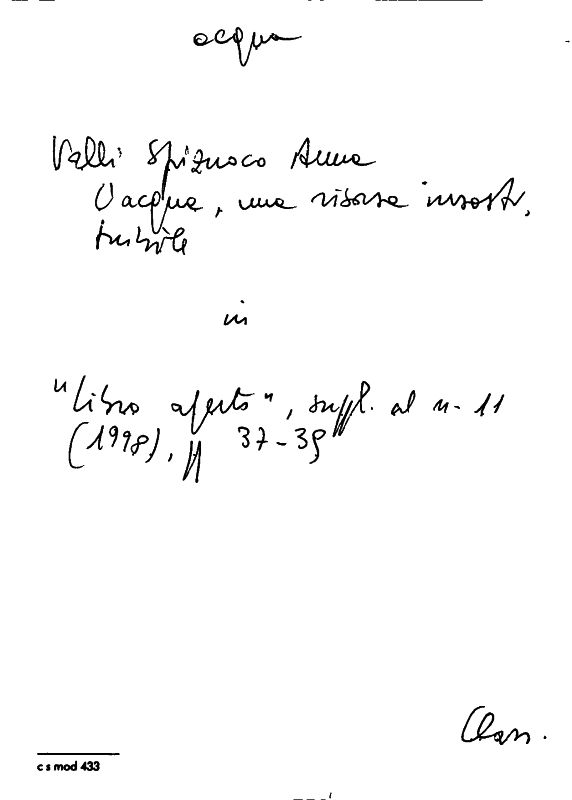 acqua
Valli Spiznoco Anna
L'acqua, una risorsa insosti,
tuibile
in
"Libro aperto", suppl. al n. 11
(1998), pp 37-39
Class.
c s mod 433